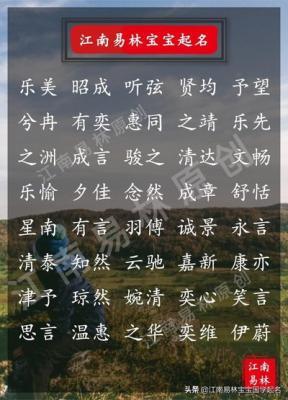 江南易林宝宝起名
乐美 昭成 听弦 贤均 予望
兮冉 有奕 惠同 之靖 乐先
之洲 成言 骏之 清达 文畅
乐愉 夕佳 念然 成章 舒恬
星南 有言 羽傅 诚景 永言
清泰 知然 云驰 嘉新 康亦
津予 琼然 婉清 奕心 笑言
思言 温惠 之华 奕维 伊蔚
江南易林原创
江南易林原创
江南
易林
头条 @江南易林宝宝国学起名